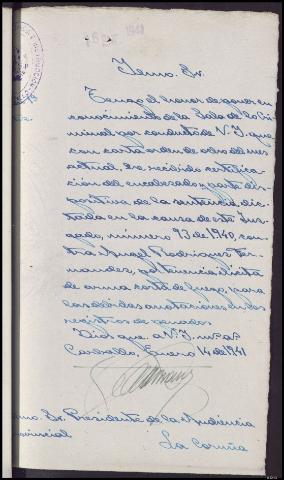 Ilmo. Sr.
Tengo el honor de poner en
conocimiento de la Sala de lo Cri
minal por conducto de V. I. que
con carta orden de ocho del mes
actual, he recibido certifica-
ción del encabezado y parte dis-
positiva de la sentencia dic-
tada en la causa de este Juz-
gado, número 93 de 1940, con-
tra Angel Rodriguez Fer-
nandez, por tenencia ilícita
de arma corta de fuego, para
las debidas anotaciones en los
registros de penados
Dios gue. a V. I. m. a.
Carballo, Enero 14 de 1941
mo. Sr. Presidente de la Audiencia
vincial.
La Coruña